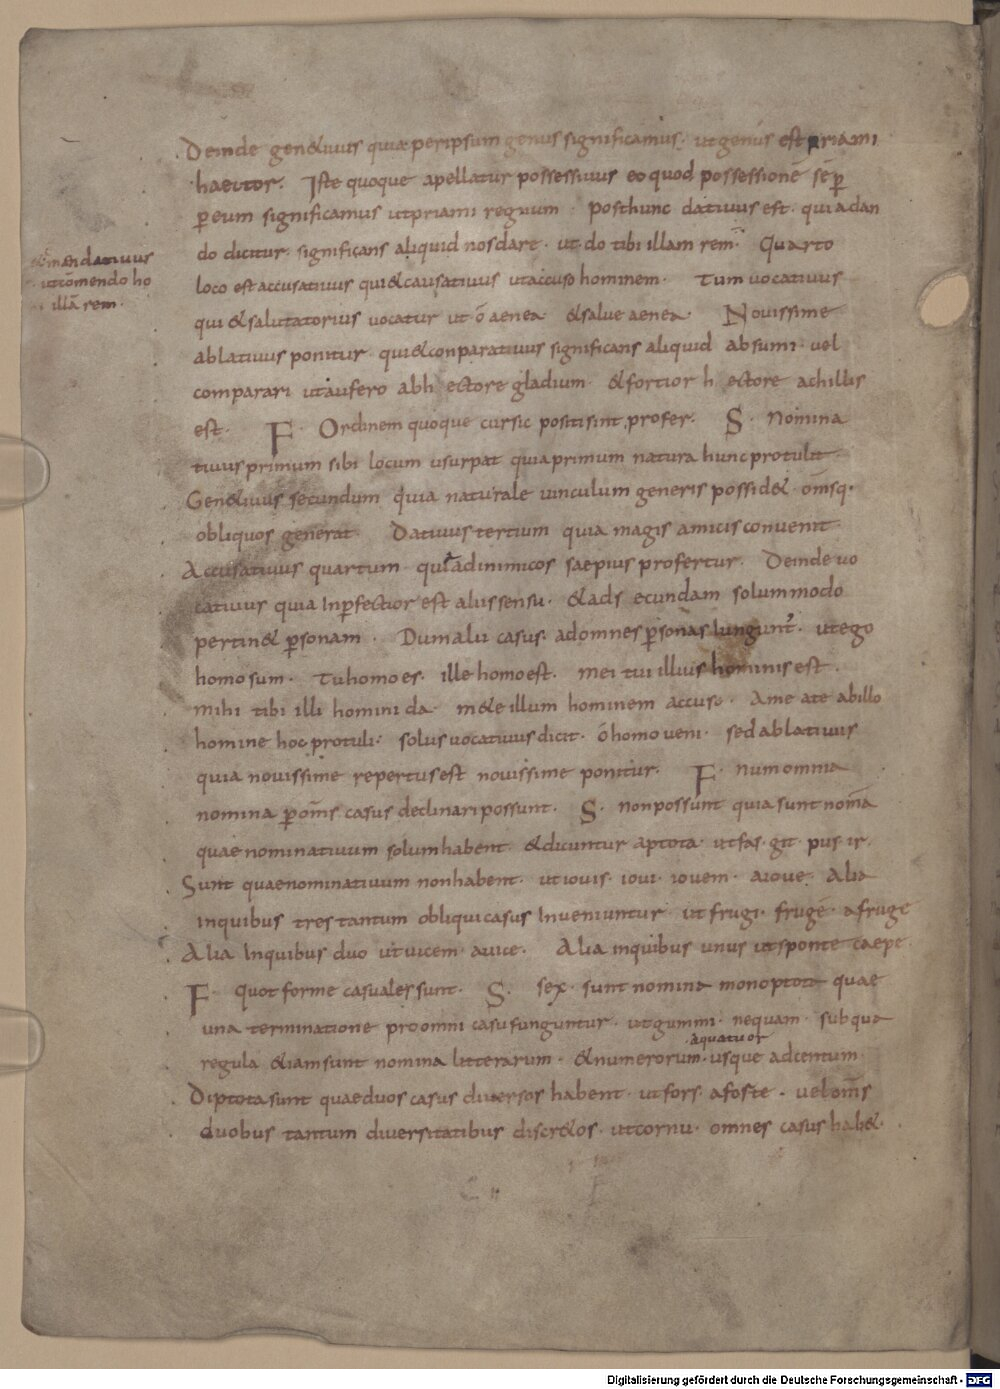 Deinde gen&iuus quia peripsum genus significamus · ut genus est priami
haector. Iste quoque apellatur possessiuus eo quod possessionē sēp̄
p̄eum significamus utpriami regnum · posthunc datiuus est · quia dan
do dicitur significans aliquid nos dare · ut do tibi illam rem · Quarto
loco est accusatiuus qui&causatiuus utaccuso hominem · Tum uocatiuus
qui &salutatorius uocatur ut ó aenea &salue aenea Nouissime
ablatiuus ponitur · qui&conparatiuus significans aliquid absumi · uel
comparari utaufero abh ectore gladium · &fortior h ectore achillis
est · F · Ordinem quoque cur sic positi sint, profer. S · Nomina
tiuus primum sibi locum usurpat quia primum natura hunc protulit
Gen&iuus secundum quia naturale uinculum generis possid& · om̄sq·
obliquos generat Datiuus tertium quia magis amicis conuenit
Accusatiuus quartum · quia adinimicos saepius profertur · Deinde uo
catiuus quia Inp̄fectior est aliis sensu · &ads ecundam solummodo
pertin& p̄sonam · Dum alii casus · adomnes p̄sonas Iungunt̄ · utego
homo sum · Tu homo es · ille homo est. mei tui illius hominis est ·
mihi tibi illi homini da · me&e illum hominem accuso · Ame ate abillo
homine hoc protuli · solus uocatiuus dicit · ó homo ueni · sed ablatiuus
quia nouissime repertus est nouissime ponitur. F · Num omnia
nomina p̄ om̄s casus declinari possunt. S · non possunt quia sunt nom̄a
quae nominatiuum solum habent · &dicuntur aptota · utfas · git · pus · ir ·
Sunt quae nominatiuum non habent · ut iouis · ioui · iouem · aioue · Alia
inquibus tres tantum obliqui casus Inueniuntur ut frugi · frugē · afruge
Alia Inquibus duo utuicem · auice · Alia inquibus unus utsponte caepe ·
F · quot forme casuales sunt · S. sex · sunt nomina monoptota quae
una terminatione pro omni casu funguntur · utgummi · nequam · sub qua
regula &iam sunt nomina litterarum · &numerorum · usque adcentum
aquatuor
Diptota sunt quae duos casus diuersos habent · utfors · aforte · uel om̄s
duobus tantum diuersitatibus discr&os · utcornu · omnes casus hab& ·
datiuus
utcōmendo ho
illā rem ·
Digitalisierung gefördert durch die Deutsche Forschungsgemeinschaft - DFG